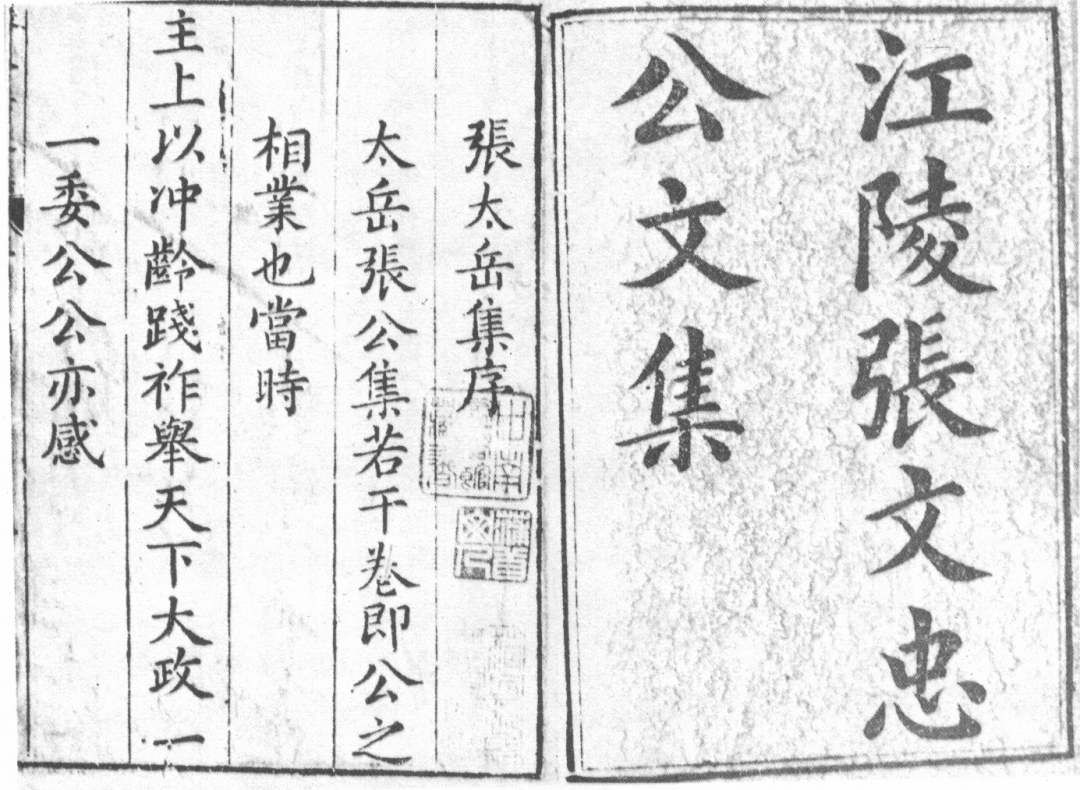 江陵張文忠
公文集
張太岳集序
太岳張公集若干卷即公之
相業也當時
主上以冲齡踐祚舉天下大政一
一委公公亦感